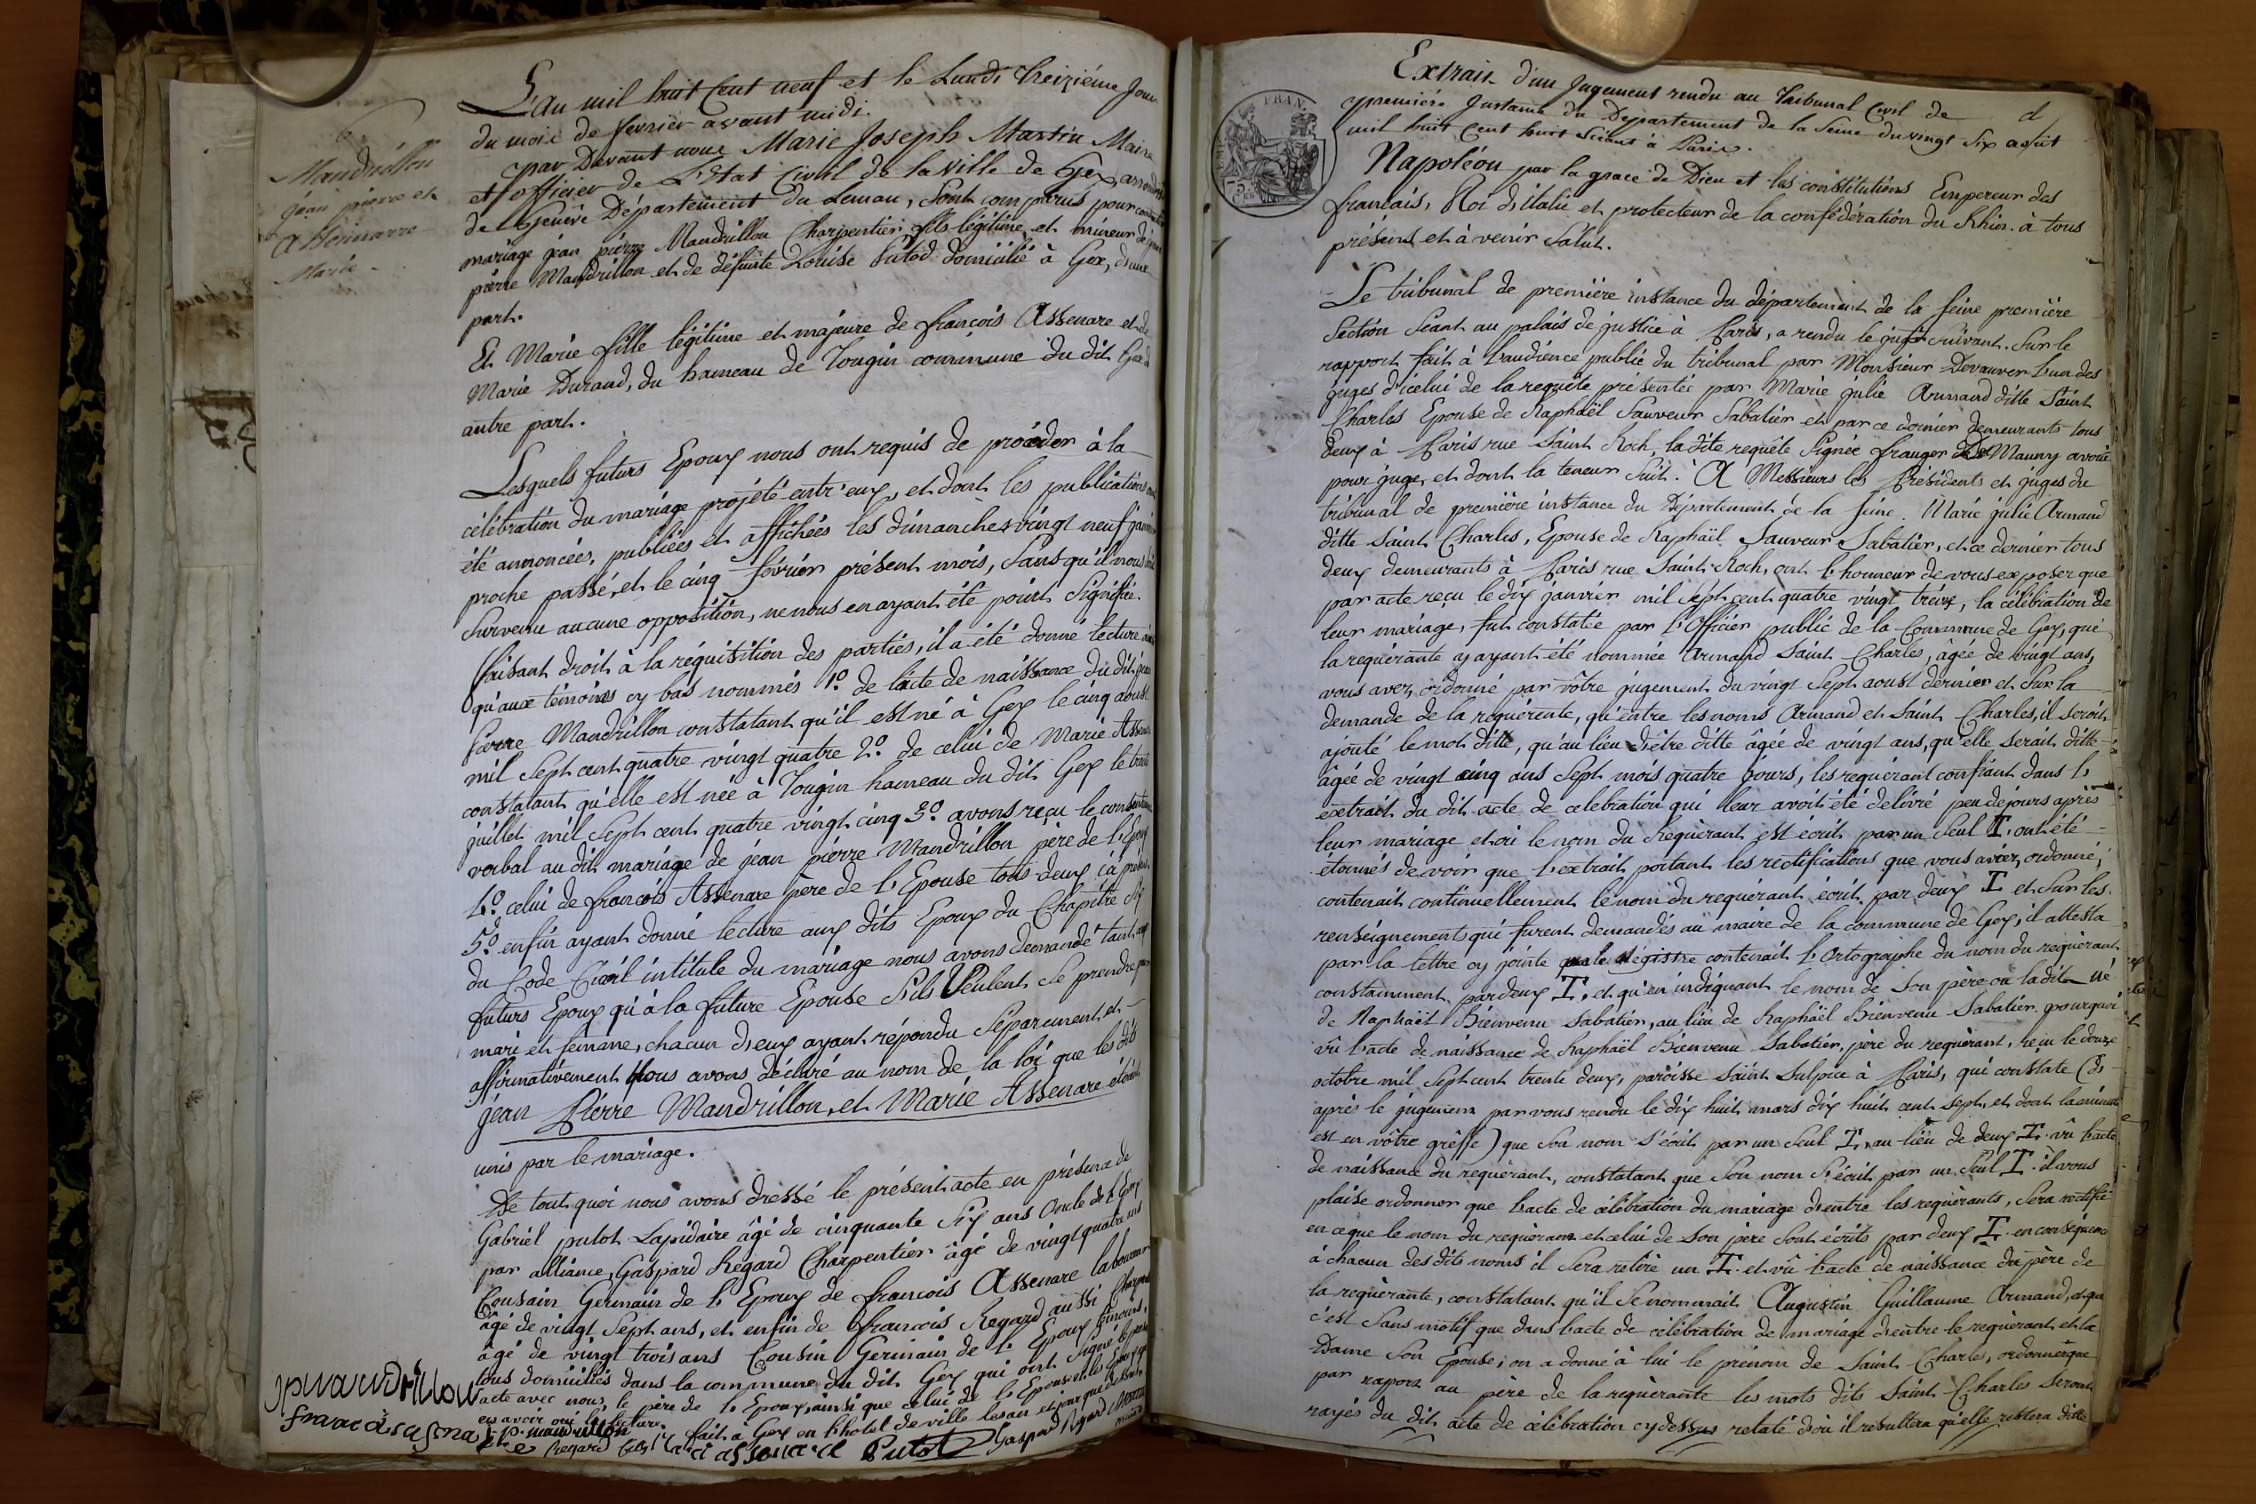 6
Mandrillon
jean pierre et
Assenarre
Marie.
L'an mil huit Cent neuf et le Lundi treizième Jour
du mois de fevrier avant midi.
par Devant nous Marie Joseph Martin Maire
et officier de L'Etat Civil de la Ville de Gex,
de Genève Département du Leman, Sont comparus pour
mariage jean pierre Mandrillon Charpentier, fils légitime et mineur de jean
pierre Mandrillon et de défunte Louise Putod domicilié à Gex, d'une
part.
Et Marie fille légitime et majeure de françois Assenare et de
Marie Durand, du hameau de Tougin commune du dit Gex d
autre part.
Lesquels futurs Epoux nous ont requis de procéder à la
célébration du mariage projété entr'eux, et dont les publications
été annoncées, publiées et affichées les dimanches vingt neuf janvier
proche passé, et le cinq février présent mois, sans qu'il nous
Survenu aucune opposition, ne nous en ayant été point Signifiée.
faisant droit à la réquisition des parties, il a été donné lecture
qu'aux témoins cy bas nommés 1.º de l'acte de naissance du dit jean
Pierre Mandrillon constatant qu'il est né à Gex le cinq aoust
mil Sept cent quatre vingt quatre 2.º de celui de Marie Assenare
constatant qu'elle est née à Tougin hameau du dit Gex le trente
juillet mil Sept cent quatre vingt cinq 3.º avons reçu le consentement
verbal au dit mariage de jean pierre Mandrillon père de l'Epoux
4.º celui de françois Assenare père de l'Epouse tous deux ici présents
5.º enfin ayant donné lecture aux dits Epoux du Chapitre Six
du Code Civil intitulé du mariage nous avons demandé tant aux
futurs Epoux qu'à la future Epouse S'ils Veulent Se prendre pour
mari et femme, chacun d'eux ayant répondu Séparement et
affirmativement Nous avons déclaré au nom de la loi que les dits
jean Pierre Mandrillon, et Marie Assenare étoient
unis par le mariage.
De tout quoi nous avons dressé le présent acte en présence de
Gabriel putot Lapidaire âgé de cinquante Six ans Oncle de l'Epoux
par alliance, Gaspard Regard Charpentier âgé de vingt quatre ans
Cousin Germain de l'Epoux de françois Assenare laboureur
âgé de vingt Sept ans, et enfin de françois Regard aussi Charpentier
âgé de vingt trois ans Cousin Germain de l'Epoux témoins,
tous domiciliés dans la commune du dit Gex qui ont Signé le présent
acte avec nous, le père de l'Epoux, ainsi que celui de l'Epouse et les Epoux
en avoir oui lecture. fait à Gex en l'hotel de ville les an et jour que dessus
jpmandrillon
j. p. mandrillon
Regard fils
Putot
Gaspard Regard
Extrait d'un Jugement rendu au Tribunal Civil de
première Instance du Département de la Seine du vingt Six août
mil huit Cent huit Séant à Paris.
FRAN.
Napoléon par la grace de Dieu et les constitutions Empereur des
français, Roi d'italie et protecteur de la confédération du Rhin. à tous
présens et à venir Salut.
Le tribunal de première instance du département de la Seine première
Section Séant au palais de justice à Paris, a rendu le jugt Suivant. Sur le
rapport fait à l'audience public du tribunal par Monsieur Devauver l'un des
juges d'icelui de la requête présentée par Marie julie Armand ditte Saint
Charles Epouse de Raphaël Sauveur Sabatier et par ce dernier demeurants tous
deux à Paris rue Saint Roch, la dite requête Signée franger De Mauny avoué
pour juge, et dont la teneur Suit. A Messieurs les Présidents et juges du
tribunal de première instance du Département de la Seine. Marie julie Armand
ditte Saint Charles, Epouse de Raphaël Sauveur Sabatier, et ce dernier tous
deux demeurants à Paris rue Saint Roch, ont l'honneur de vous exposer que
par acte reçu le dix janvier mil Sept cent quatre vingt treize, la célébration de
leur mariage, fut constatée par l'Officier public de la Commune de Gex, que
la requérante y ayant été nommée Armand Saint Charles, âgée de vingt ans,
vous avez ordonné par vôtre jugement du vingt Sept aoust dernier et Sur la
demande de la requérante, qu'entre les noms Armand et Saint Charles, il seroit
ajouté le mot ditte, qu'au lieu d'être ditte âgée de vingt ans, qu'elle serait ditte
âgée de vingt cinq ans Sept mois quatre jours, les requérant confiant dans l'
extrait du dit acte de celebration qui leur avoit été delivré peu de jours après
leur mariage et où le nom du Requérant est écrit par un Seul T, ont été
étonnés de voir que l'extrait portant les rectifications que vous aviez, ordonné,
contenait continuellement le nom du requérant écrit par deux T et Sur les
renseignements qui furent demandés au maire de la commune de Gex, il attesta
par la lettre cy jointe que le Régistre contenait l'Ortographe du nom du requérant
constamment par deux T, et qu'en indiquant le nom de Son père on la dit né
de Raphaël Bienvenu Sabatier, au lieu de Raphaël Bienvenu Sabatier. pourquoi
vû l'acte de naissance de Raphaël Bienvenu Sabatier, père du requérant, reçu le douze
octobre mil Sept cent trente deux, paroisse Saint Sulpice à Paris, qui constate (d'
après le jugement par vous rendu le dix huit mars dix huit cent Sept, et dont la minute
est en vôtre greffe) que Son nom S'écrit par un Seul T, au lieu de deux T. vû l'acte
de naissance du requérant, constatant que Son nom S'écrit par un Seul T. il vous
plaise ordonner que l'acte de célébration du mariage d'entre les requérants, Sera rectifié
en ce que le nom du requérant et celui de Son père Sont écrits par deux T. en conséquence
à chacun des dits noms il Sera retiré un T. et vû l'acte de naissance du père de
la requérante, constatant qu'il Se nommait Augustin Guillaume Armand, et que
c'est Sans motif que dans l'acte de célébration de mariage d'entre le requérant et la
Dame Son Epouse, on a donné à lui le prénom de Saint Charles, ordonner que
par rapport au père de la requérante les mots dits Saint Charles Seront
rayés du dit acte de célébration cy dessus relaté d'où il résultera qu'elle restera ditte